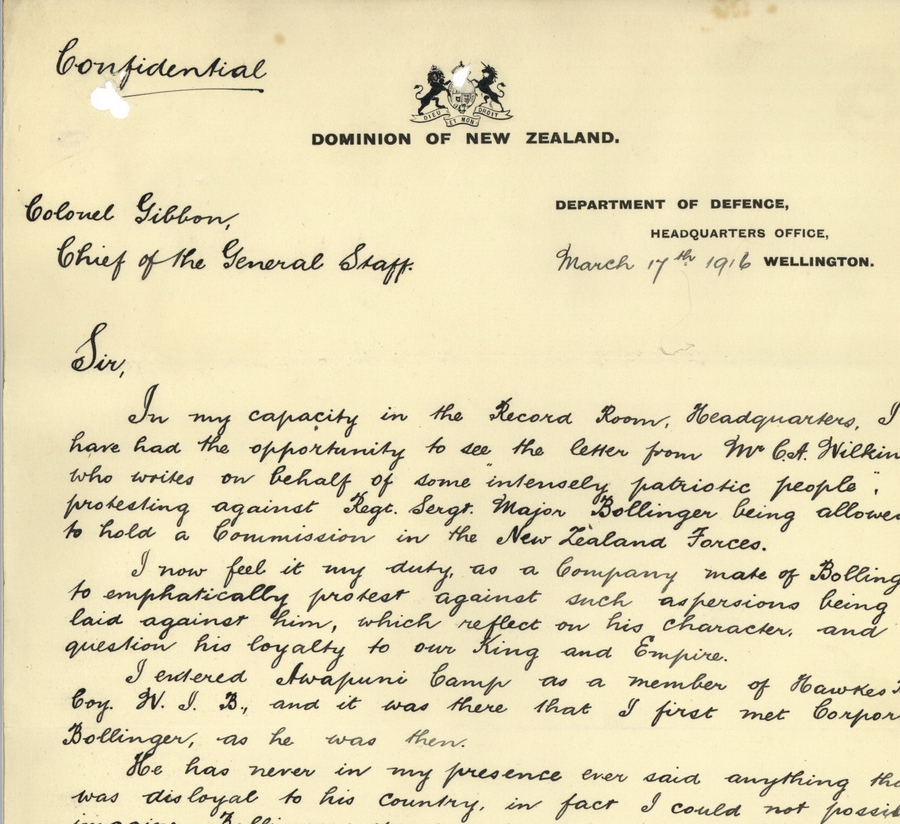 Confidential
DIEU ET MON DROIT
DOMINION OF NEW ZEALAND.
Colonel Gibbon,
Chief of the General Staff.
DEPARTMENT OF DEFENCE,
HEADQUARTERS OFFICE,
March 17th 1916 WELLINGTON.
Sir,
In my capacity in the Record Room, Headquarters, I
have had the opportunity to see the letter from Mr C.A. Wilkin
who writes on behalf of some "intensely patriotic people",
protesting against Regt. Sergt. Major Bollinger being allowed
to hold a Commission in the New Zealand Forces.
I now feel it my duty, as a Company mate of Bolling
to emphatically protest against such aspersions being
laid against him, which reflect on his character, and
question his loyalty to our King and Empire.
I entered Awapuni Camp as a member of Hawkes
Coy. W. I. B., and it was there that I first met Corpor
Bollinger, as he was then.
He has never in my presence ever said anything tha
was disloyal to his country, in fact I could not possib